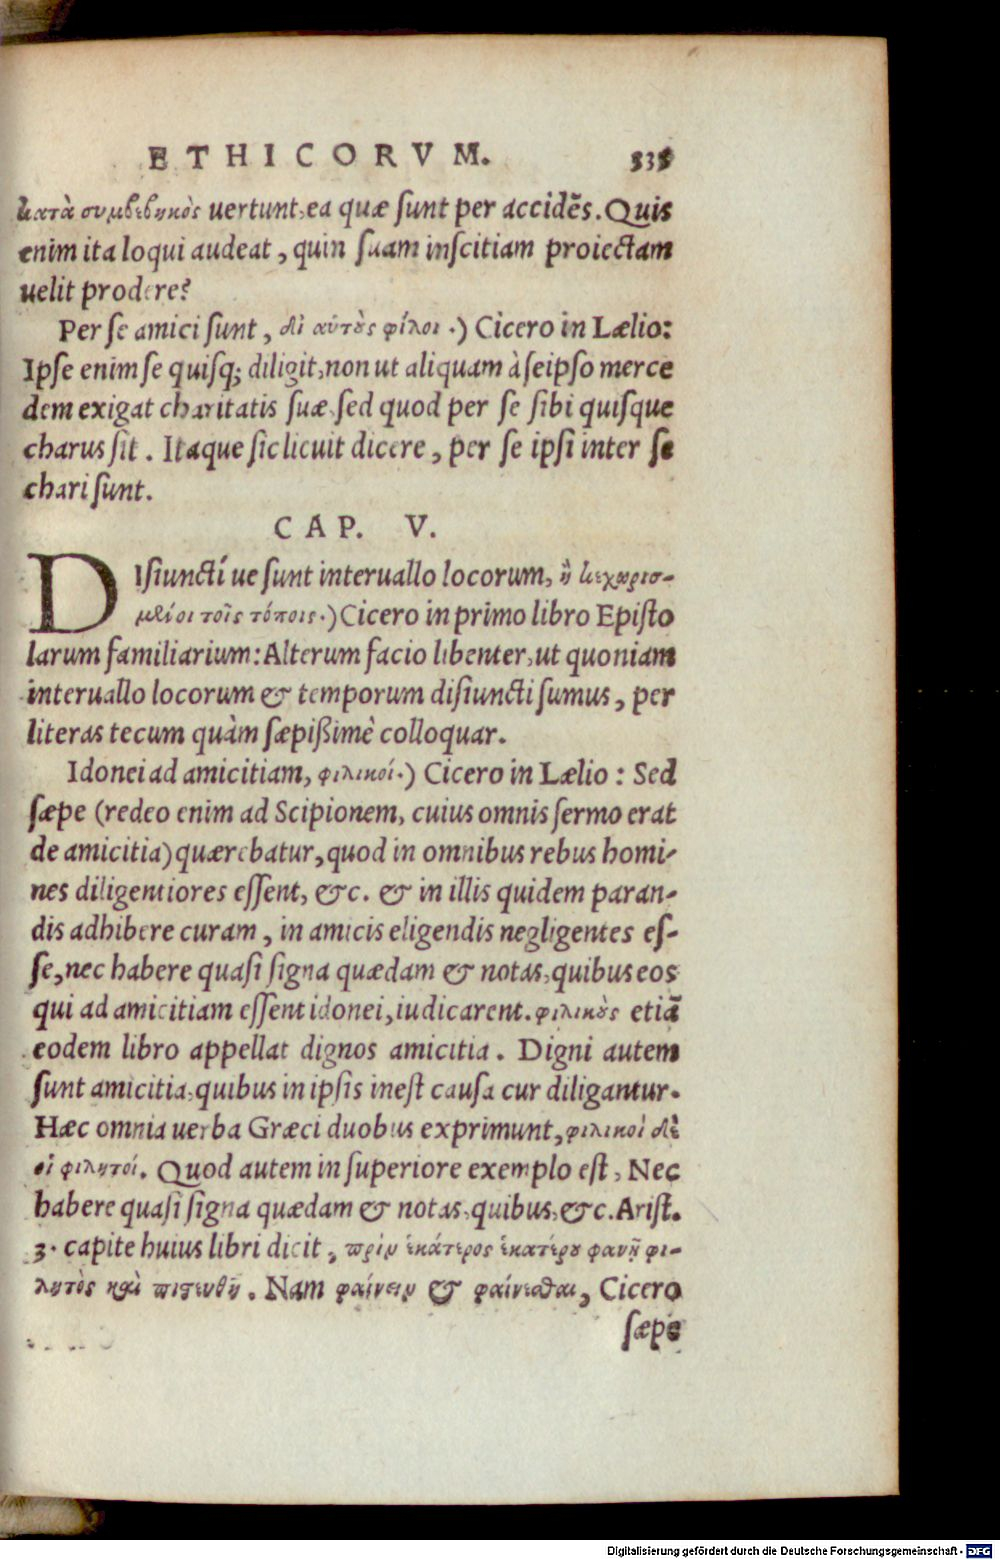 ETHICORVM. 535
κατὰ συμβεβηκὸς uertunt, ea quæ sunt per accidẽs. Quis
enim ita loqui audeat, quin suam inscitiam proiectam
uelit prodere?
Per se amici sunt, δι' αὑτοὺς φίλοι.) Cicero in Lælio:
Ipse enim se quisq; diligit, non ut aliquam à seipso merce
dem exigat charitatis suæ, sed quod per se sibi quisque
charus sit. Itaque sic licuit dicere, per se ipsi inter se
chari sunt.
CAP. V.
DIsiunctí ue sunt interuallo locorum, ἢ κεχωρισ-
μένοι τοῖς τόποις.) Cicero in primo libro Episto
larum familiarium: Alterum facio libenter, ut quoniam
interuallo locorum & temporum disiuncti sumus, per
literas tecum quàm sæpißimè colloquar.
Idonei ad amicitiam, φιλικοί.) Cicero in Lælio: Sed
sæpe (redeo enim ad Scipionem, cuius omnis sermo erat
de amicitia) quærebatur, quod in omnibus rebus homi-
nes diligentiores essent, &c. & in illis quidem paran-
dis adhibere curam, in amicis eligendis negligentes es-
se, nec habere quasi signa quædam & notas, quibus eos
qui ad amicitiam essent idonei, iudicarent. φιλικοὺς etiã
eodem libro appellat dignos amicitia. Digni autem
sunt amicitia, quibus in ipsis inest causa cur diligantur.
Hæc omnia uerba Græci duobus exprimunt, φιλικοὶ δὲ
οἱ φιλητοί. Quod autem in superiore exemplo est, Nec
habere quasi signa quædam & notas, quibus, &c. Arist.
3. capite huius libri dicit, πρὶν ἑκάτερος ἑκατέρου φανῇ φι-
λητὸς καὶ πιστευθῇ. Nam φαίνειν & φαίνεσθαι, Cicero
sæpe
Digitalisierung gefördert durch die Deutsche Forschungsgemeinschaft - DFG